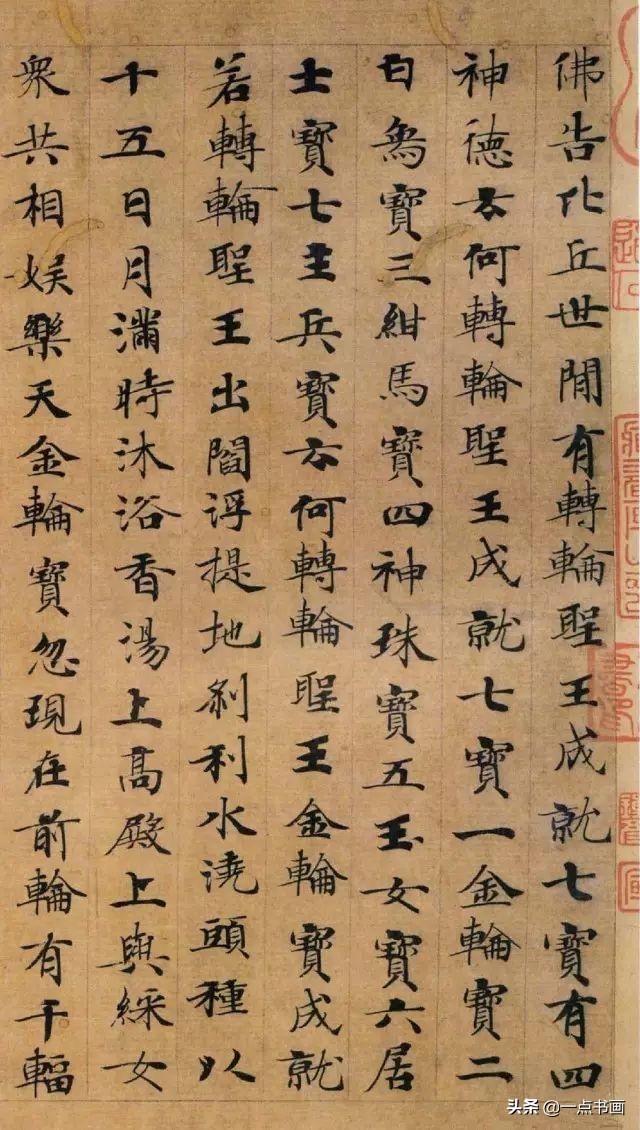 佛告比丘世間有轉輪聖王成就七寶有四
神德云何轉輪聖王成就七寶一金輪寶二
白象寶三紺馬寶四神珠寶五玉女寶六居
士寶七主兵寶云何轉輪聖王金輪寶成就
若轉輪聖王出閻浮提地剎利水澆頭種以
十五日月滿時沐浴香湯上高殿上與綵女
衆共相娱樂天金輪寶忽現在前輪有千輻
头条 @一点书画